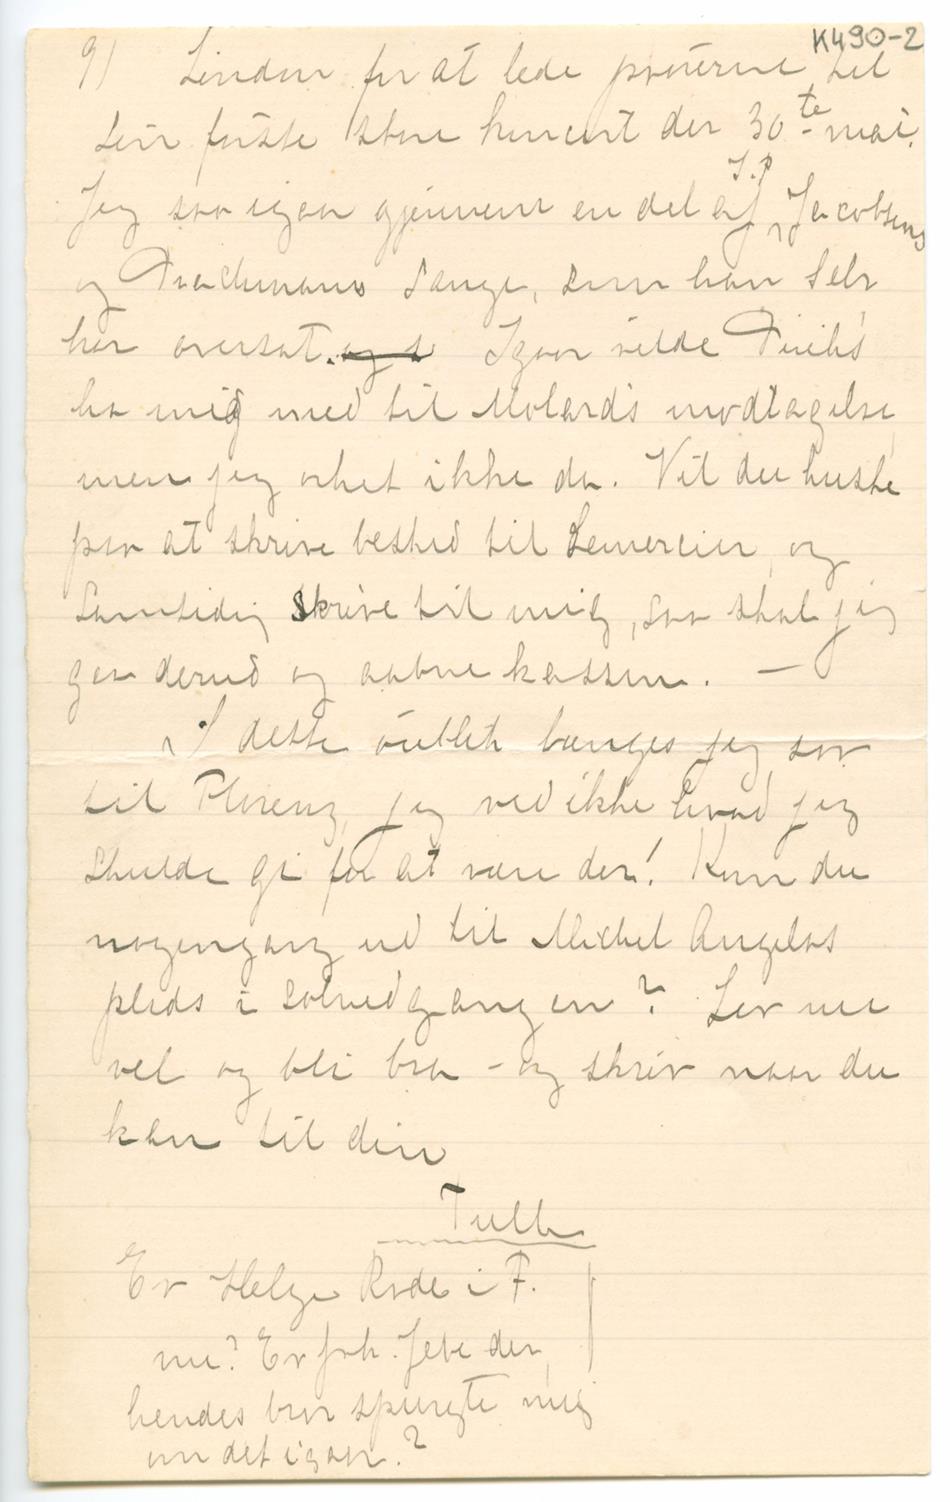 K490-2
9) London for at lede prøverne til
sin første store koncert den 30te mai.
Jeg saa igaar gjennem en del af J.P. Jacobsens
og Drachmanns Sange, som han selv
har oversat. og s Igaar vilde
ha mig med til Molards modtagelse,
men jeg orket ikke da. Vil du huske
paa at skrive besked til Lemercier, og
samtidig skrive til mig, saa skal jeg
gaa derud og aabne kassen. —
I dette øieblik længes jeg saa
til Florenz, jeg ved ikke hvad jeg
skulde gi for at være der! Kom du
nogengang ud til Michel Angelos
plads i solnedgangen? Lev nu
vel og bli bra – og skriv naar du
kan til din
Tulla
Er Helge Rode i F.
nu? Er frk. Jebe der,
hendes bror spurgte mig
om det igaar.?